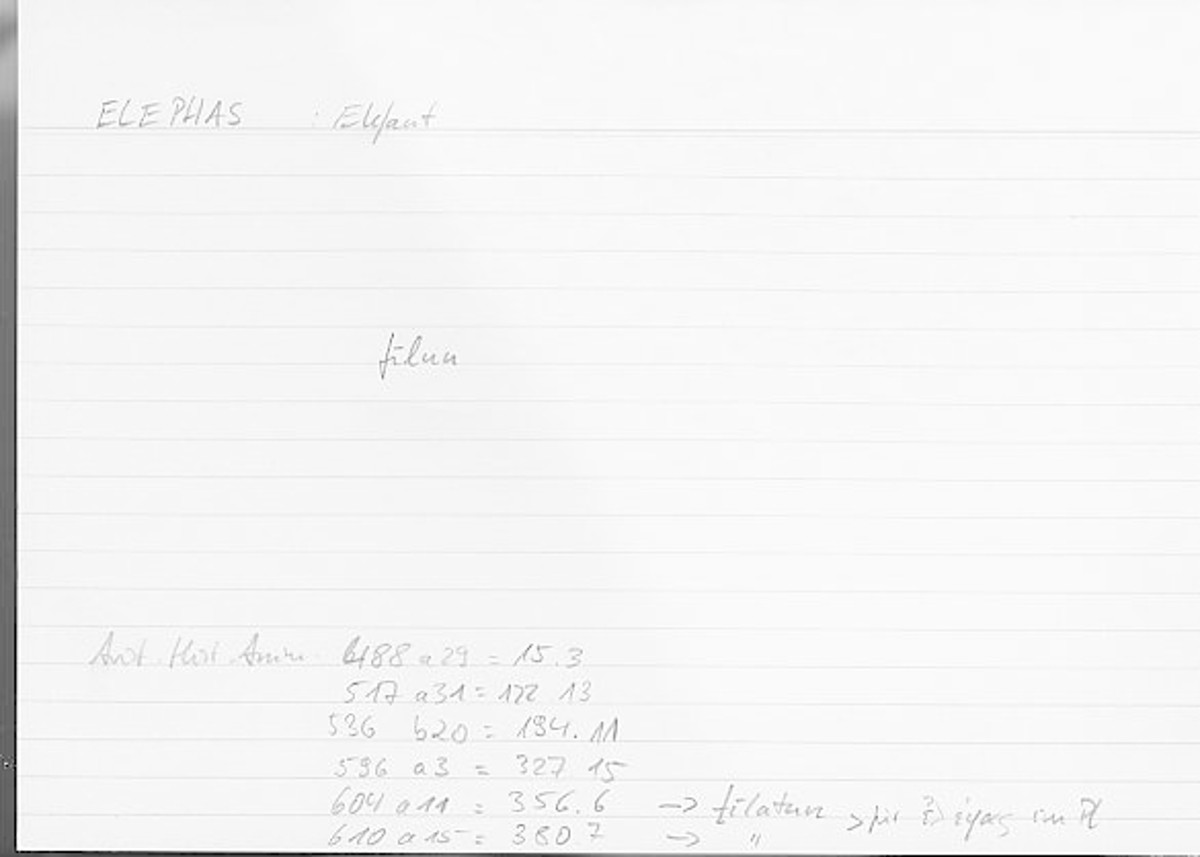 ELEPHAS : Elefant
fīlun
Arist. Hist. Anim. 488 a 29 = 15.3
517 a31 = 122 13
536 b20 = 194.11
596 a3 = 327 15
604 a11 = 356.6 → fīlatun > für ἐλέφας im Pl
610 a15 = 380 7 → "